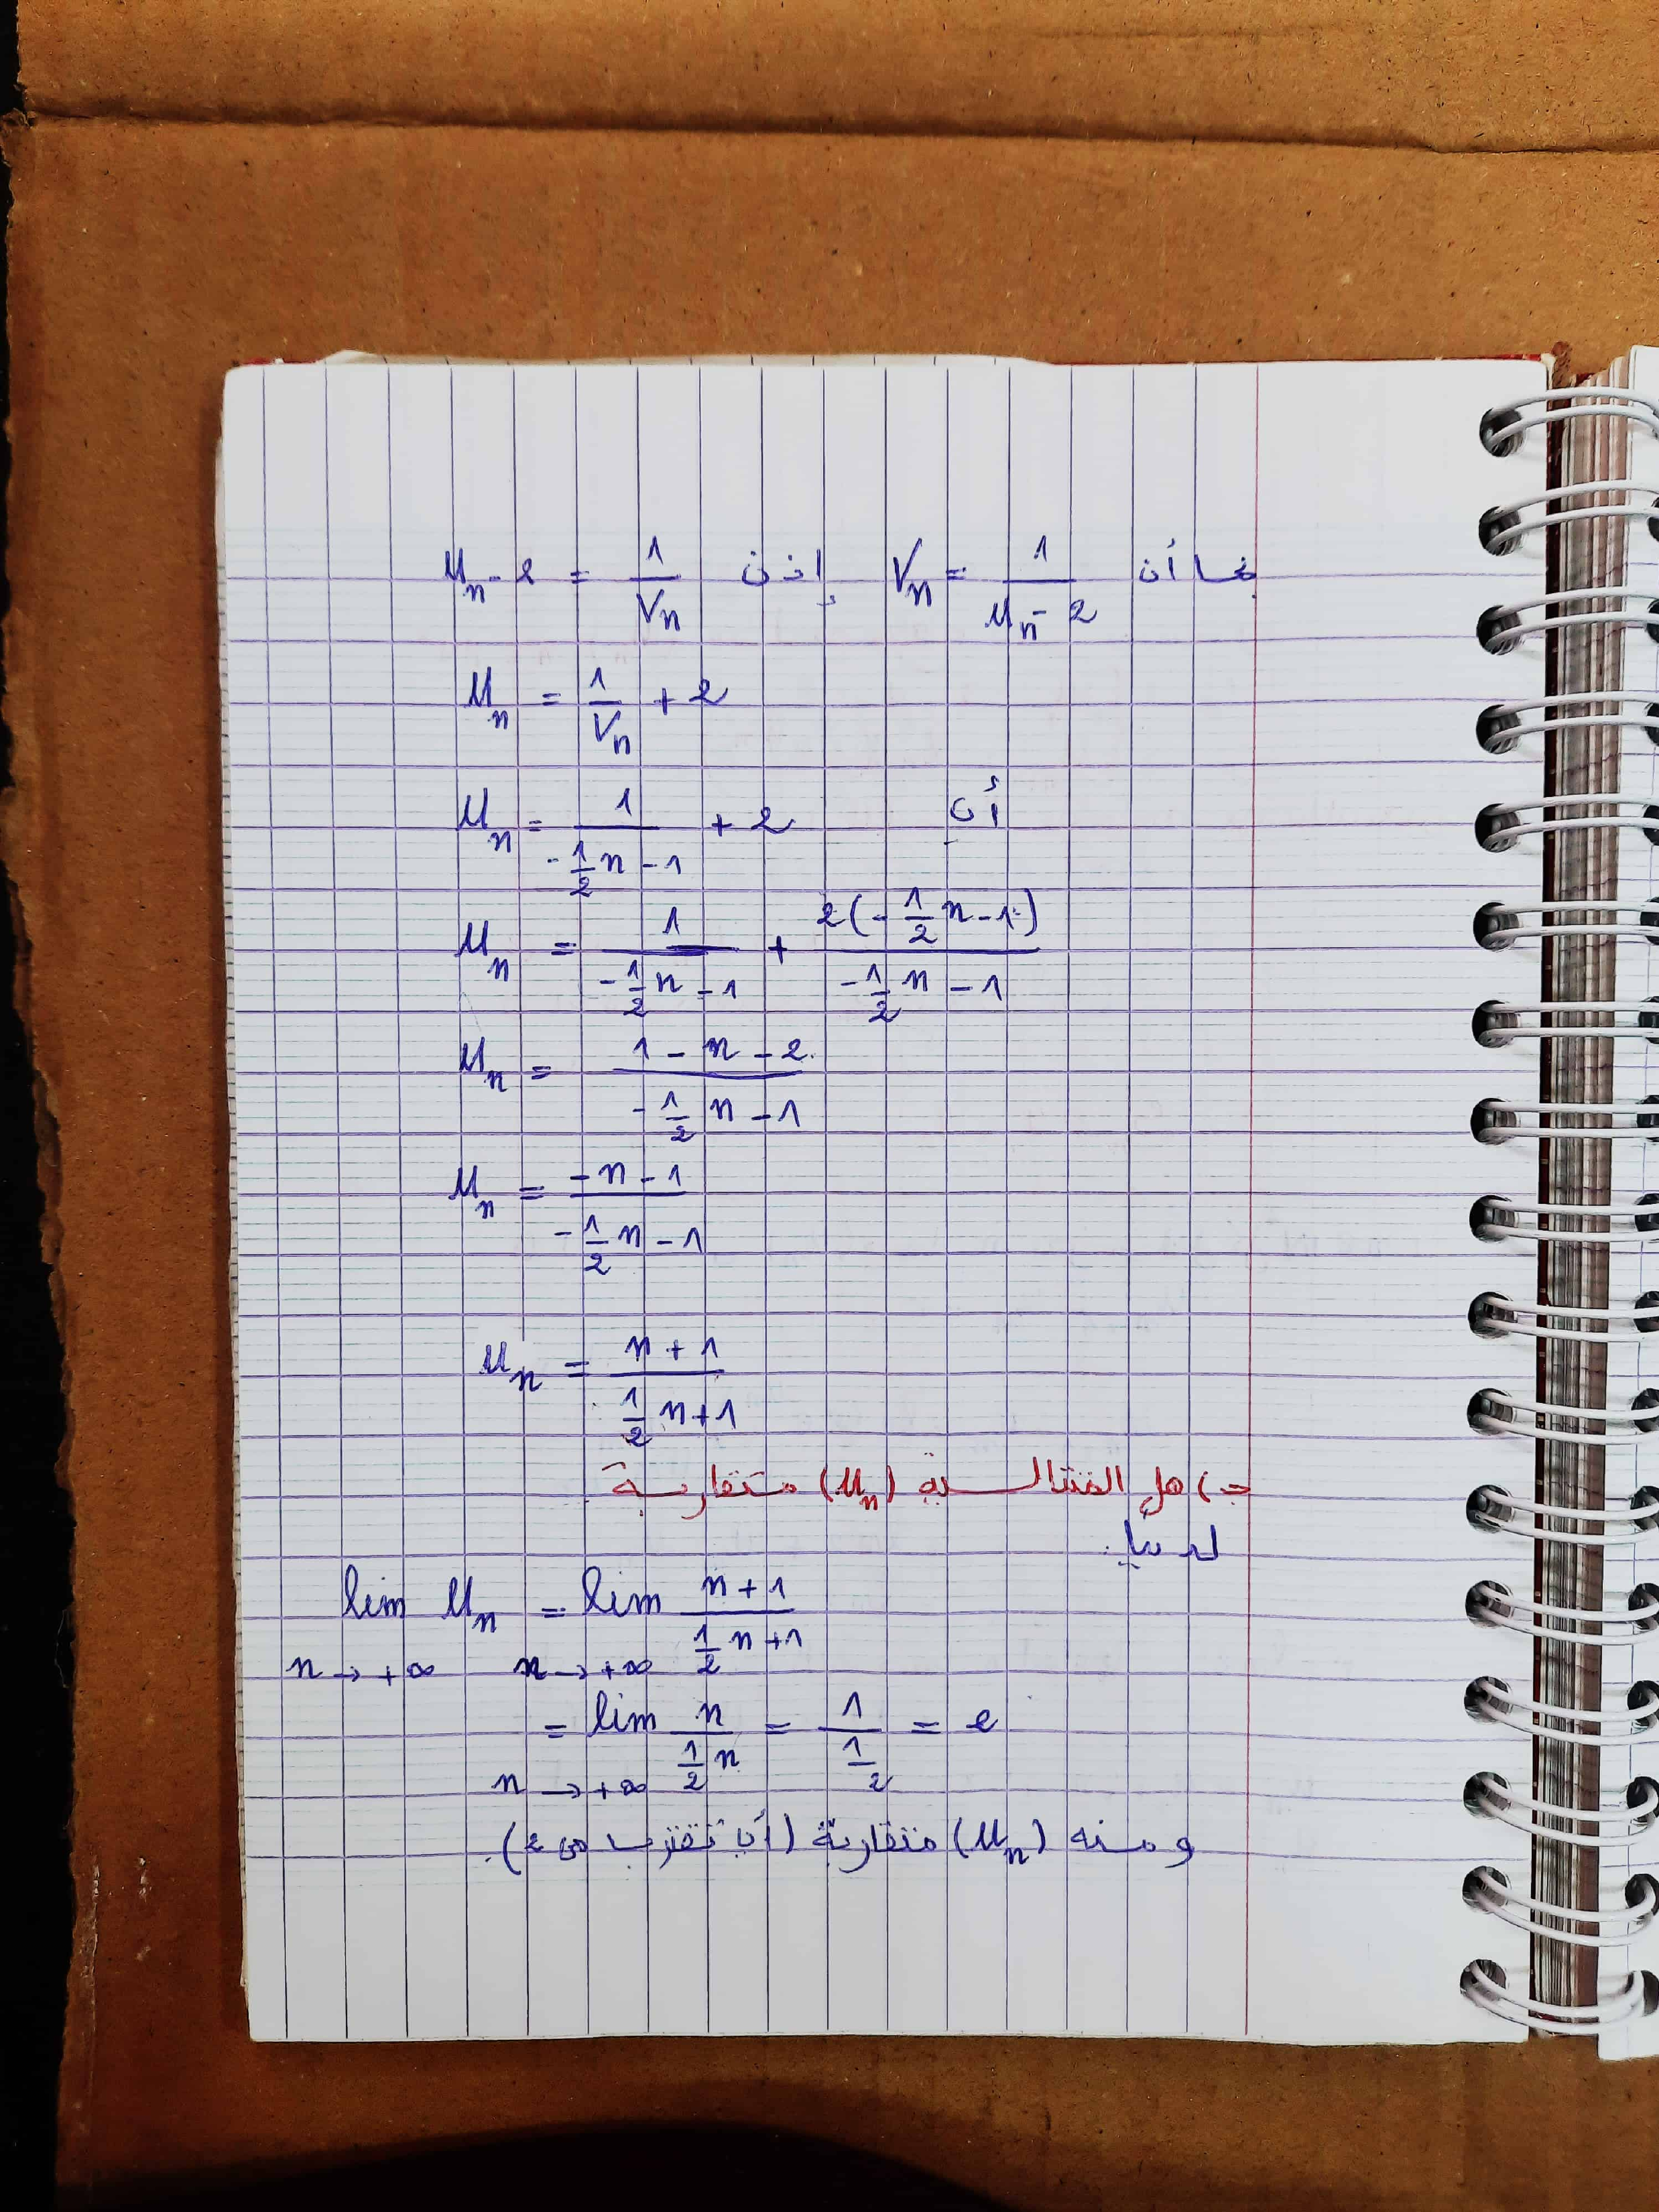 بما أن Vn = 1/(Un - 2) إذن Un - 2 = 1/Vn
Un = 1/Vn + 2
أن Un = 1/(-1/2 n - 1) + 2
Un = 1/(-1/2 n - 1) + 2(-1/2 n - 1)/(-1/2 n - 1)
Un = (1 - n - 2)/(-1/2 n - 1)
Un = (-n - 1)/(-1/2 n - 1)
Un = (n + 1)/(1/2 n + 1)
ج) هل المتتالية (Un) متقاربة
لدينا
lim Un = lim (n + 1)/(1/2 n + 1)
n → +∞ n → +∞
= lim n/(1/2 n) = 1/(1/2) = 2
n → +∞
ومنه (Un) متقاربة (أي تقترب من 2).